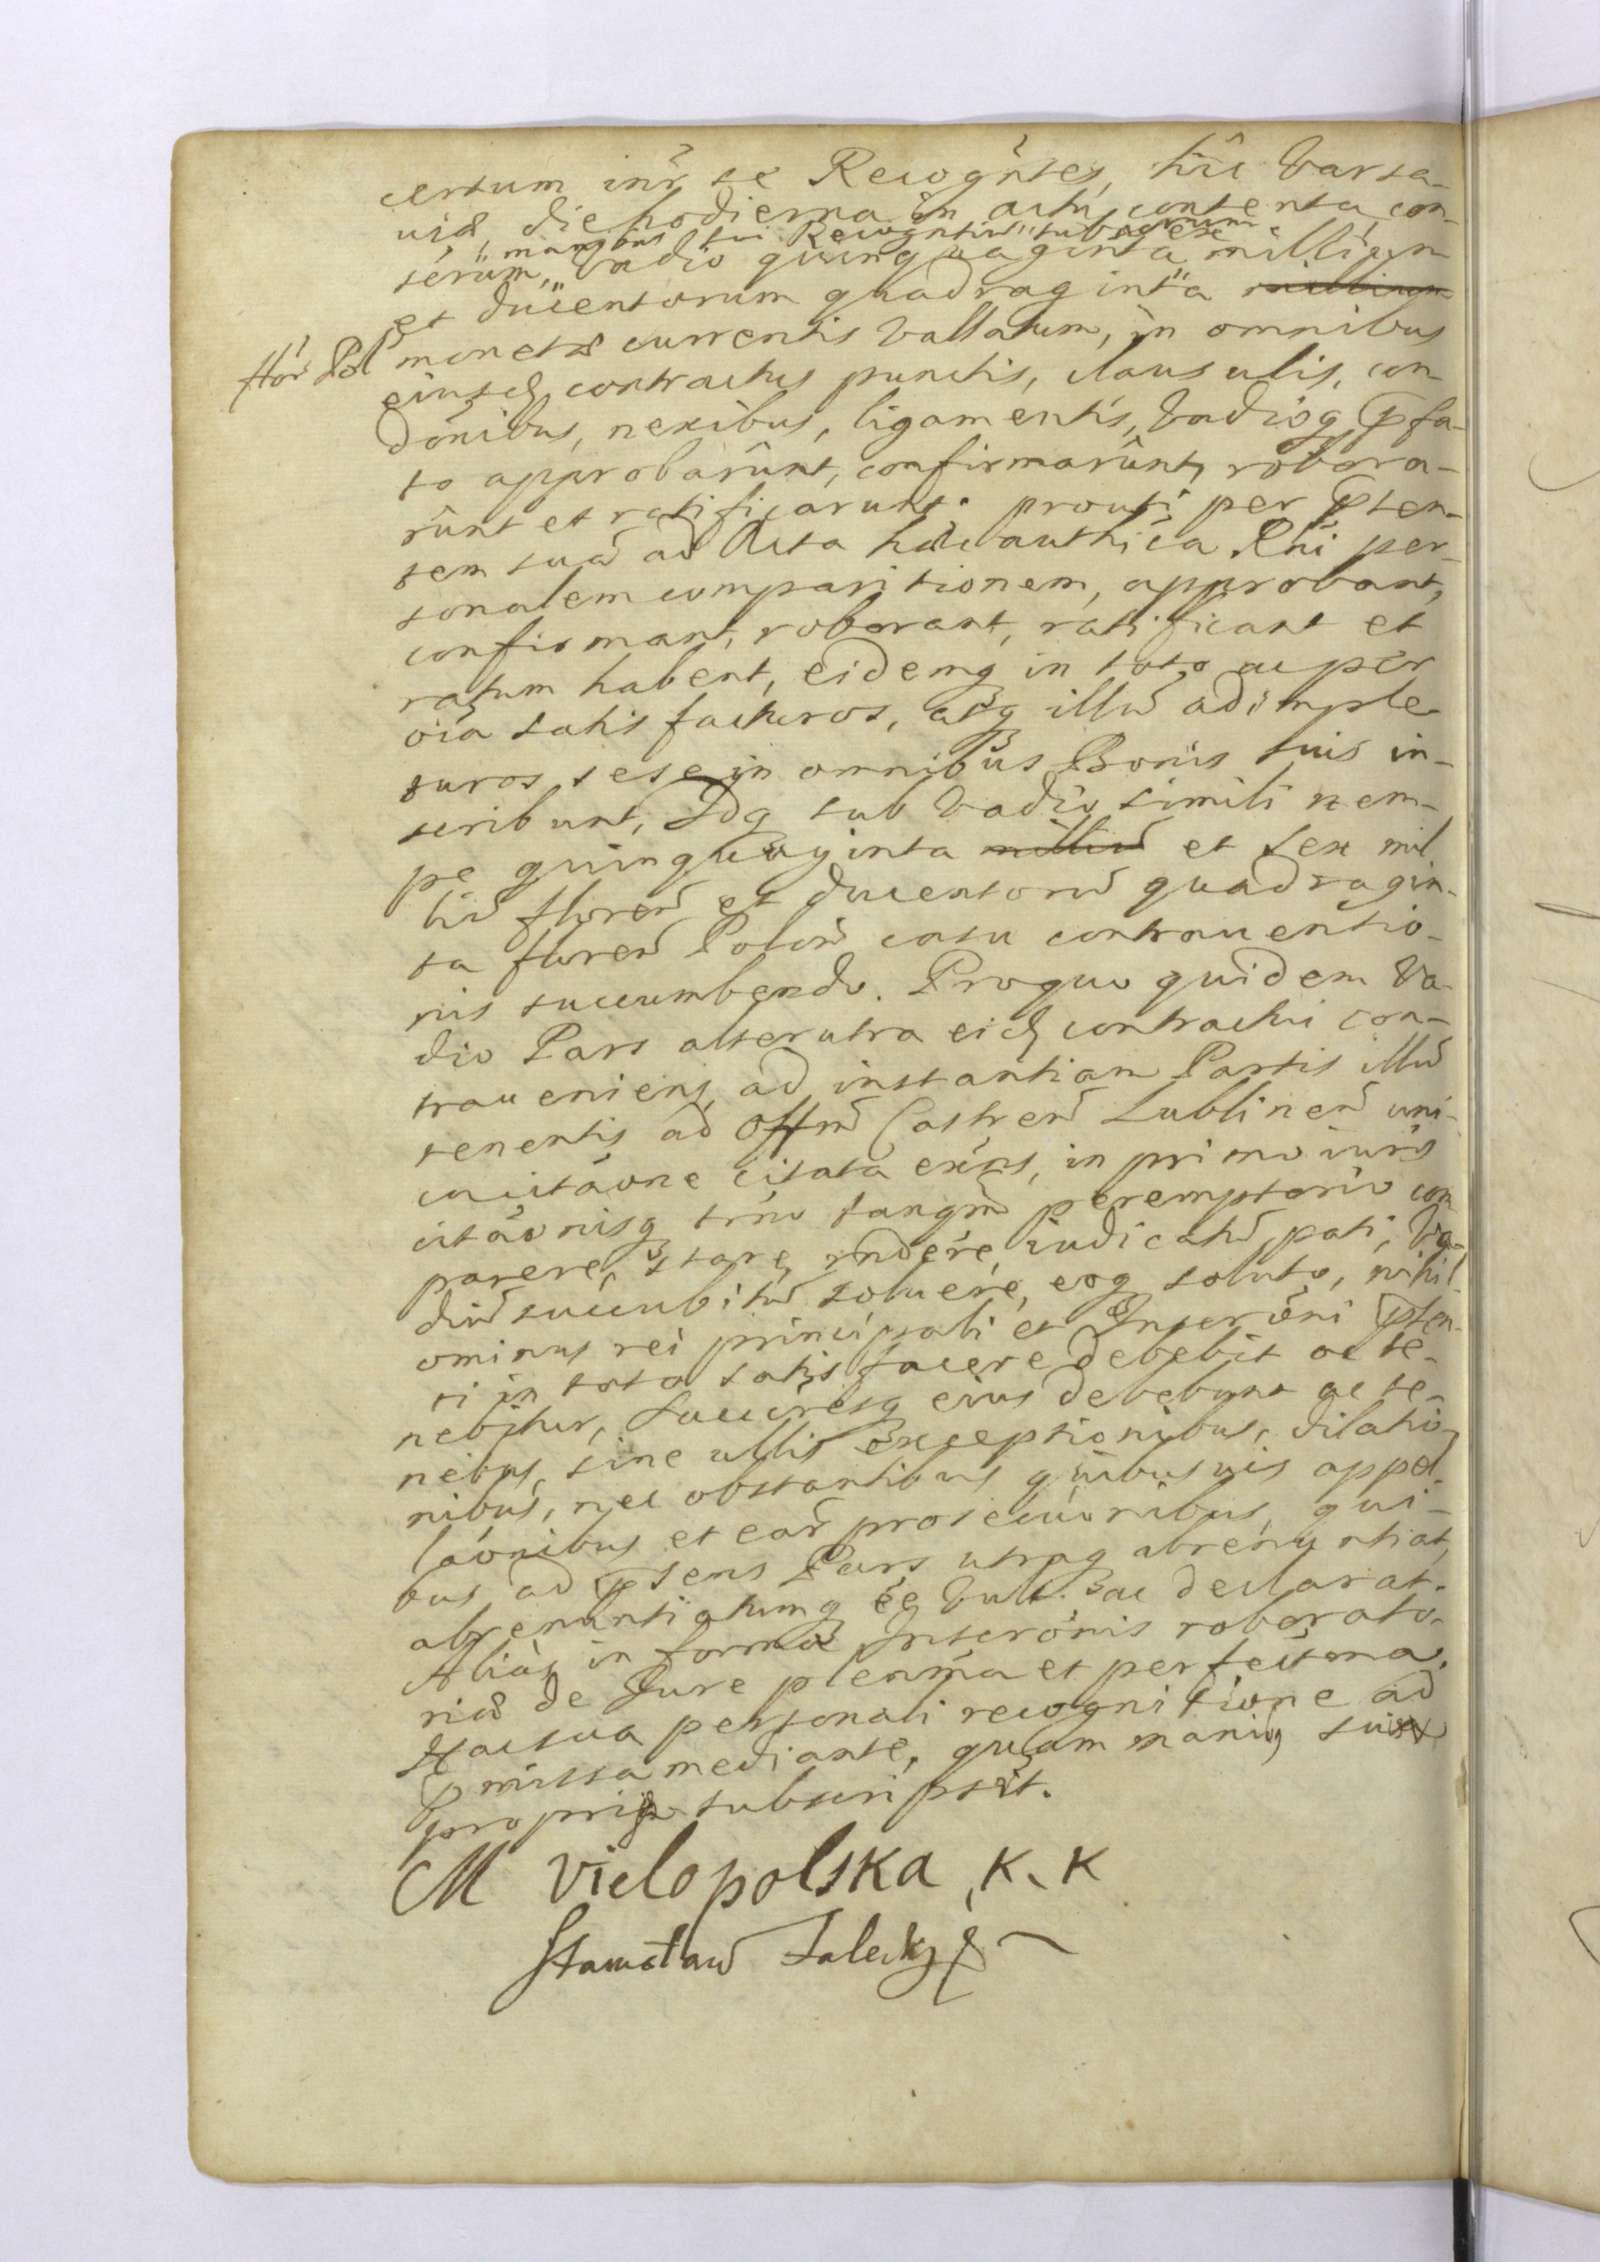 certum inr̃ se Recogñtes, hîc Varsa-
uiæ die hodierna in actu contenta con-
manibus sui Recogntiũ subscri
serũm, vadio quinquaginta sex milliũm
et ducentorum quadraginta millium
flor̃ Pol monetæ currentis vallatum, in omnibus
eiusd contractus punctis, clausulis, con
dõnibus, nexibus, ligamentis, vadioq p̃fa-
to approbarûnt, confirmarûnt, robora-
rûnt et ratificarunt. prouti per p̃sen-
tem suã ad Acta hæc authîca Rñi per-
sonalem comparitionem, approbant,
confirmant, roborant, ratificant et
ratum habent, eidemq in toto ac per
oĩa satisfacturos, atq illũ adimple
turos sese in omnibus Bonis suis in-
scribunt, Idq sub vadio simili nem-
pe quinquaginta milliũ et sex mil
liũ florenũ et ducentorũ quadragin-
ta florenũ Polonũ casu contrauentio-
nis succumbendo. Pro quo quidem va-
dio Pars alterutra eid contractui con-
traueniens, ad instantiam Partis illũ
tenentis ad Offm̃ Castren̄ Lublinen̄ uni-
ca citãone citata exñs, in primo iuris
citãonisq trño tanqm̃ peremptorio com
parere, stare, rndere, iudicatũ pati, va-
diũ succubitũ soluere, eoq soluto, nihil
ominus rei principali et Inscrõni p̃sen-
ti in toto satisfacere debebit ac te-
nebitur, Succẽresq eius debebunt ac te-
nebuntur, sine ullis exceptionibus, dilatio
nibus, nec obstantibus quibusuis appel-
lãonibus et ear̃ prosecuõnibus, qui-
bus ad p̃sens Pars utraq abrenuntiat,
abrenuntiatumq ẽe vult ac declarat.
Alias in forma Inscrõnis roborato-
riæ de Jure plenm̃a et perfectma.
Hac sua personali recognitione ad
p̃missa mediante, quam manibus suis
propriis subscripserũt.
M Vielopolska, K. K
Stanisław Zaleski